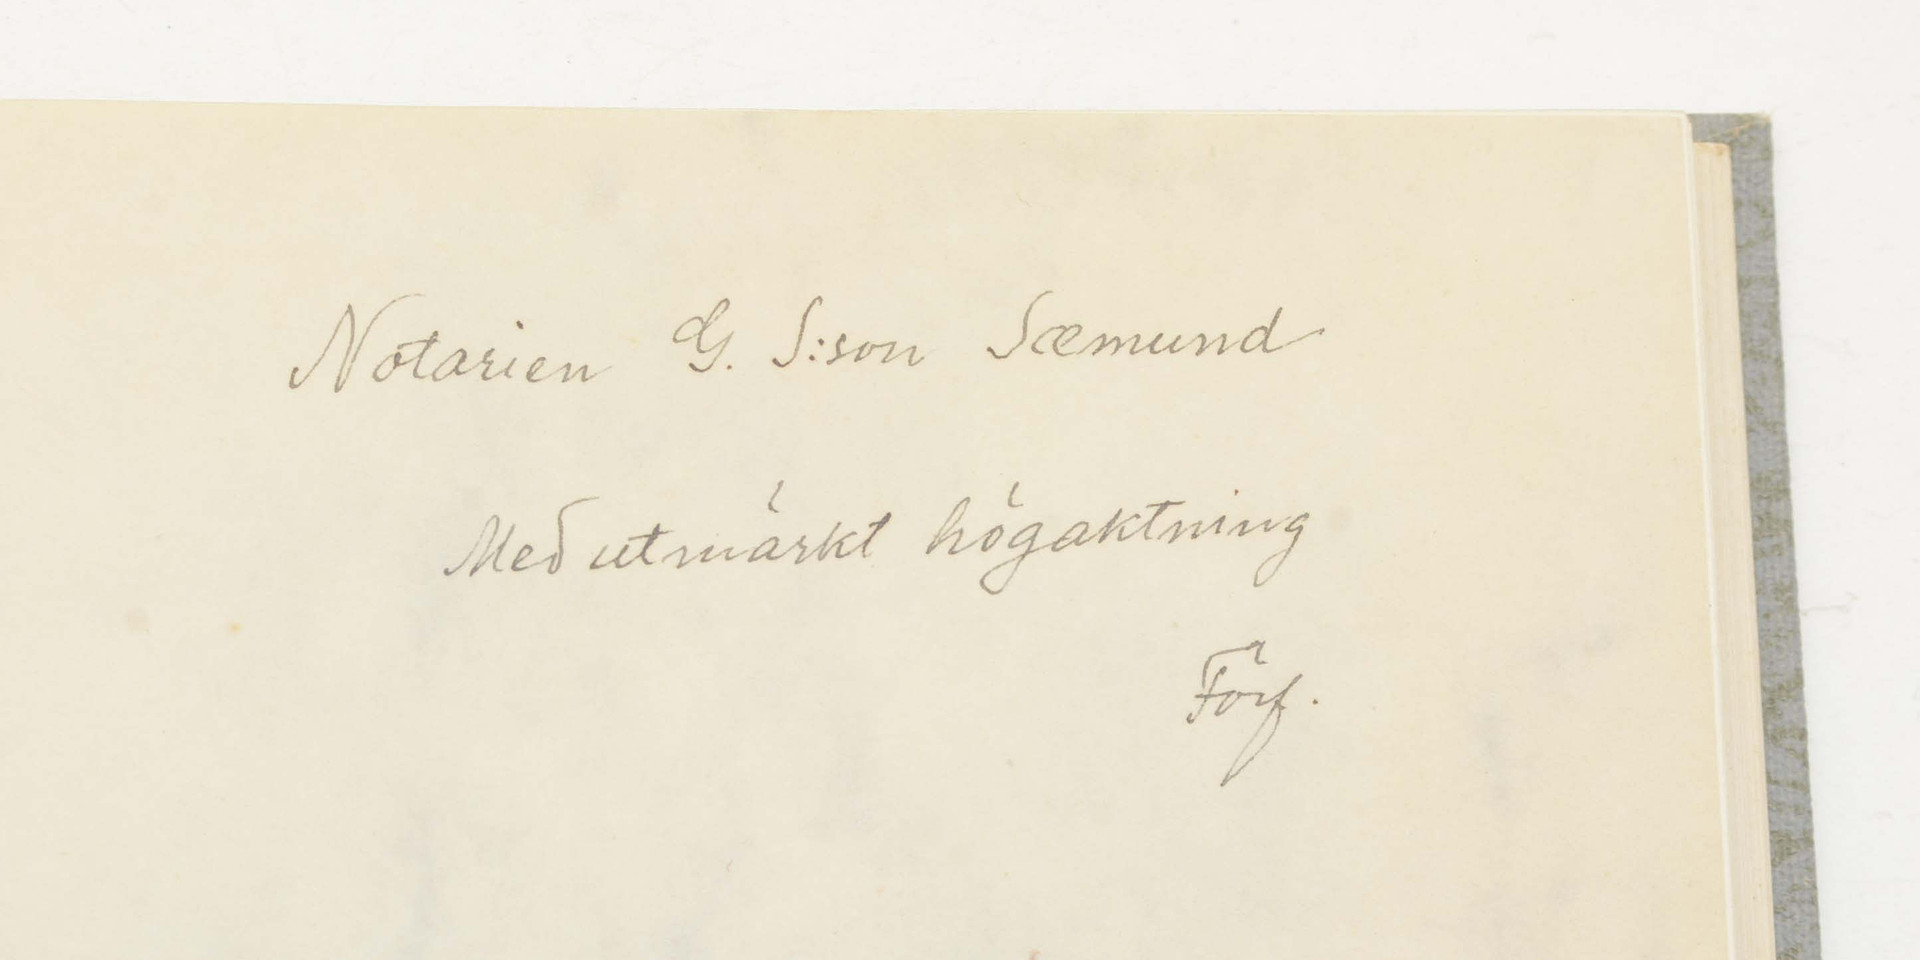 Notarien G. S:son Sæmund
Med utmärkt högaktning
Förf.